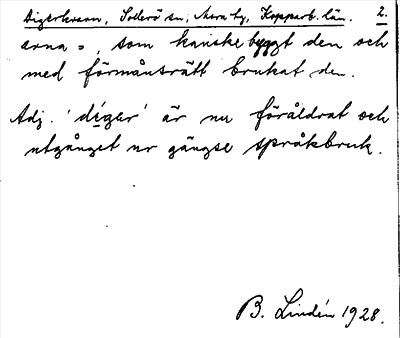 Digerkvarn, Sollerö sn, Mora tg, Kopparb. län. 2.
arna =, som kanske byggt den och
med förmånsrätt brukat den.
Adj. 'diger' är nu föråldrat och
utgånget ur gängse språkbruk.
B. Lindén 1928.